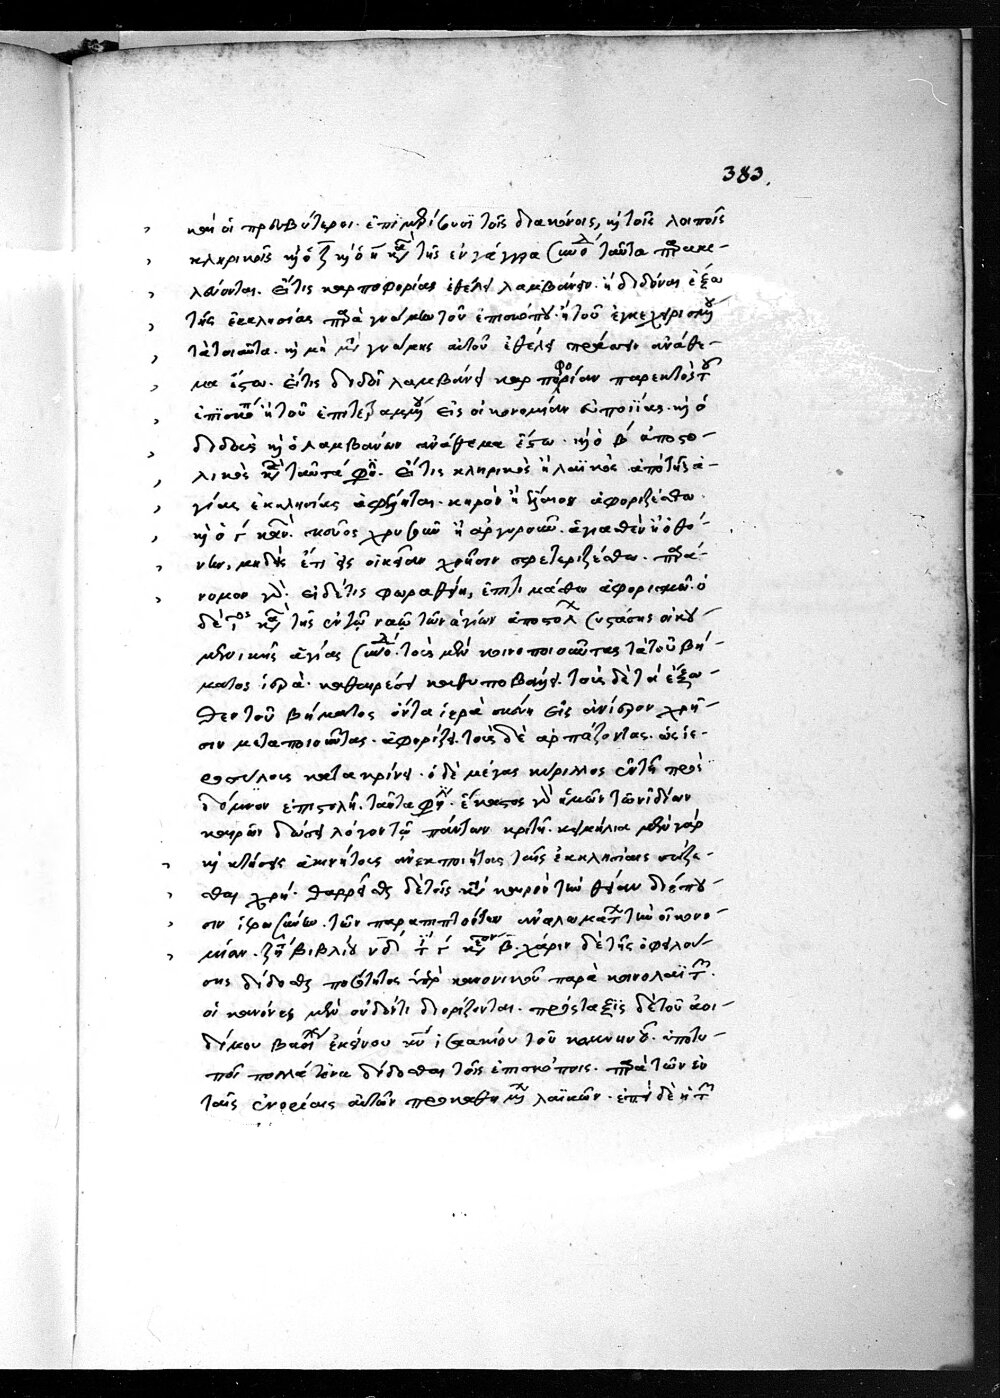 383.
καὶ οἱ πρεσβύτεροι. ἐπιμερίσωσι τοῖς διακόνοις, κ τοῖς λοιποῖς
κληρικοῖς κ ὁ ζ κ ὁ η κα τῆς ἐν γάγγρα συνό ταῦτα παρακε-
λεύονται. εἴ τις καρποφορίας ἐθέλει λαμβάνειν. ἢ διδόναι ἔξω
τῆς ἐκκλησίας παρὰ γνώμην τοῦ ἐπισκόπου. ἢ τοῦ ἐγκεχειρισμου
τὰ τοιαῦτα. κ μὴ μετὰ γνώμης αὐτοῦ ἐθέλει πράττειν ἀνάθε-
μα ἔστω. εἴ τις διδοῖ λαμβάνει καρποφορίαν παρεκτὸς τοῦ
ἐπισκόπου ἢ τοῦ ἐπιτεταγμένου εἰς οἰκονομίαν εὐποιΐας. κ ὁ
διδοὺς κ ὁ λαμβάνων ἀνάθεμα ἔστω. κ ὁ β ἀποστο-
λικὸς καν ταῦτά φησι. εἴ τις κληρικὸς ἢ λαϊκὸς ἀπὸ τῆς ἁ-
γίας ἐκκλησίας ἀφέληται. κηρὸν ἢ ἔλαιον ἀφοριζέσθω.
κ ὁ γ καν. σκεῦος χρυσοῦν ἢ ἀργυροῦν. ἁγιασθὲν ἢ ὀθό-
νην, μηδεὶς ἔτι εἰς οἰκείαν χρῆσιν σφετεριζέσθω. παρά-
νομον γὰρ. εἰ δέ τις φωραθείη, ἐπιτιμάσθω ἀφορισμῶ. ὁ
δὲ ι κα τῆς ἐν τῷ ναῷ τῶν ἁγίων ἀποστόλ συστάσης οἰκου
μενικῆς ἁγίας συνό. τοὺς μὲν κοινοποιοῦντας τὰ τοῦ βή-
ματος ἱερὰ. καθαιρέσει καθυποβάλλει. τοὺς δὲ τὰ ἔξω-
θεν τοῦ βήματος ὄντα ἱερὰ σκεύη εἰς ἀνίερον χρῆ-
σιν μεταποιοῦντας. ἀφορίζει. τοὺς δὲ ἁρπάζοντας. ὡς ἱε-
ροσύλους κατακρίνει. ὁ δὲ μέγας κύριλλος ἐν τῇ πρὸς
δόμνον ἐπιστολῇ. ταῦτα φησι. ἕκαστος γὰρ ἡμῶν τῶν ἰδίων
καιρῶν δώσει λόγον τῷ πάντων κριτῇ. κειμήλια μὲν γὰρ
κ κτήσεις ἀκινήτους ἀνεκποιήτους ταῖς ἐκκλησίαις σώζε-
σθαι χρή. θαρρεῖσθαι δὲ τοῖς κατὰ καιρὸν τὴν θείαν διέπου
σιν ἱερωσύνην. τῶν παραπιπτόντων ἀναλωμάτων τὴν οἰκονο-
μίαν. ζήτει βιβλίου νδ τι γ κεφ β. χάριν δὲ τῆς ὀφειλού-
σης δίδοσθαι ποσότητος ὑπὲρ κανονικοῦ παρὰ κοινολαϊτῶν.
οἱ κανόνες μὲν οὐδέν τι διορίζονται. πρόσταξις δὲ τοῦ ἀοι-
δίμου βασιλέως ἐκείνου κυροῦ ἰσαακίου τοῦ κομνηνοῦ. ὑποτυ-
ποῖ πολλά τινα δίδοσθαι τοῖς ἐπισκόποις. παρὰ τῶν ἐν
ταῖς ἐνορίαις αὐτῶν προκαθημένων λαϊκῶν. ἐπεὶ δὲ ἡ τῶν